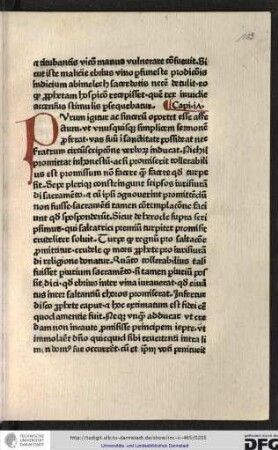 et titubantis vicem manus vulnerare consuevit. Si
cut iste malicie ebrius vino p funeste prodicõis
indicium abimelech sacerdotis necem detulit‑eo
q prophetam hospicio recepisset‑quem rex invidie
accensus stimulis psequebatur. Capi. iA.
PUrum igitur ac sincerum oportet esse affe
ctum. ut vnusquisque simplicem sermone
proferat‑vas suum in sanctitate possideat nec
fratrem circumscriptione verborum inducat. Nichil
promittat inhonestum‑ac si promiserit tollerabilius
est promissum non facere quam facere quod turpe
sit. Sepe plerique constringunt seipsos iurisiurandi
di sacramento‑et cum ipsi agnoverint promittendum
non fuisse‑sacramenti tamen contemplacõne faci
unt quod spoponderunt. Sicut de herode supra scri
psimus‑qui saltatrici premium turpiter promisit‑
crudeliter solvit. Turpe q regnum pro saltacõe
promittitur‑crudele q mors prophete pro iurisiuran
di religione donatur. Quanto tollerabilius tali
fuisset periurium sacramento‑si tamen periurium pos
sit dici‑quod ebrius inter vina iuraverat‑quod evira
tus inter saltantium choros promiserat. Infertur
disco prophete caput‑et hoc estimatum est fidei esse
quod amentie fuit. Neque vnquam adducar vt cre
dam non incaute promisisse principem iepte‑vt
immolaret domino quicquid sibi revertenti intra li
men domus sue occurreret‑cum et ipsum voti penituerit
Universitäts- und Landesbibliothek Darmstadt